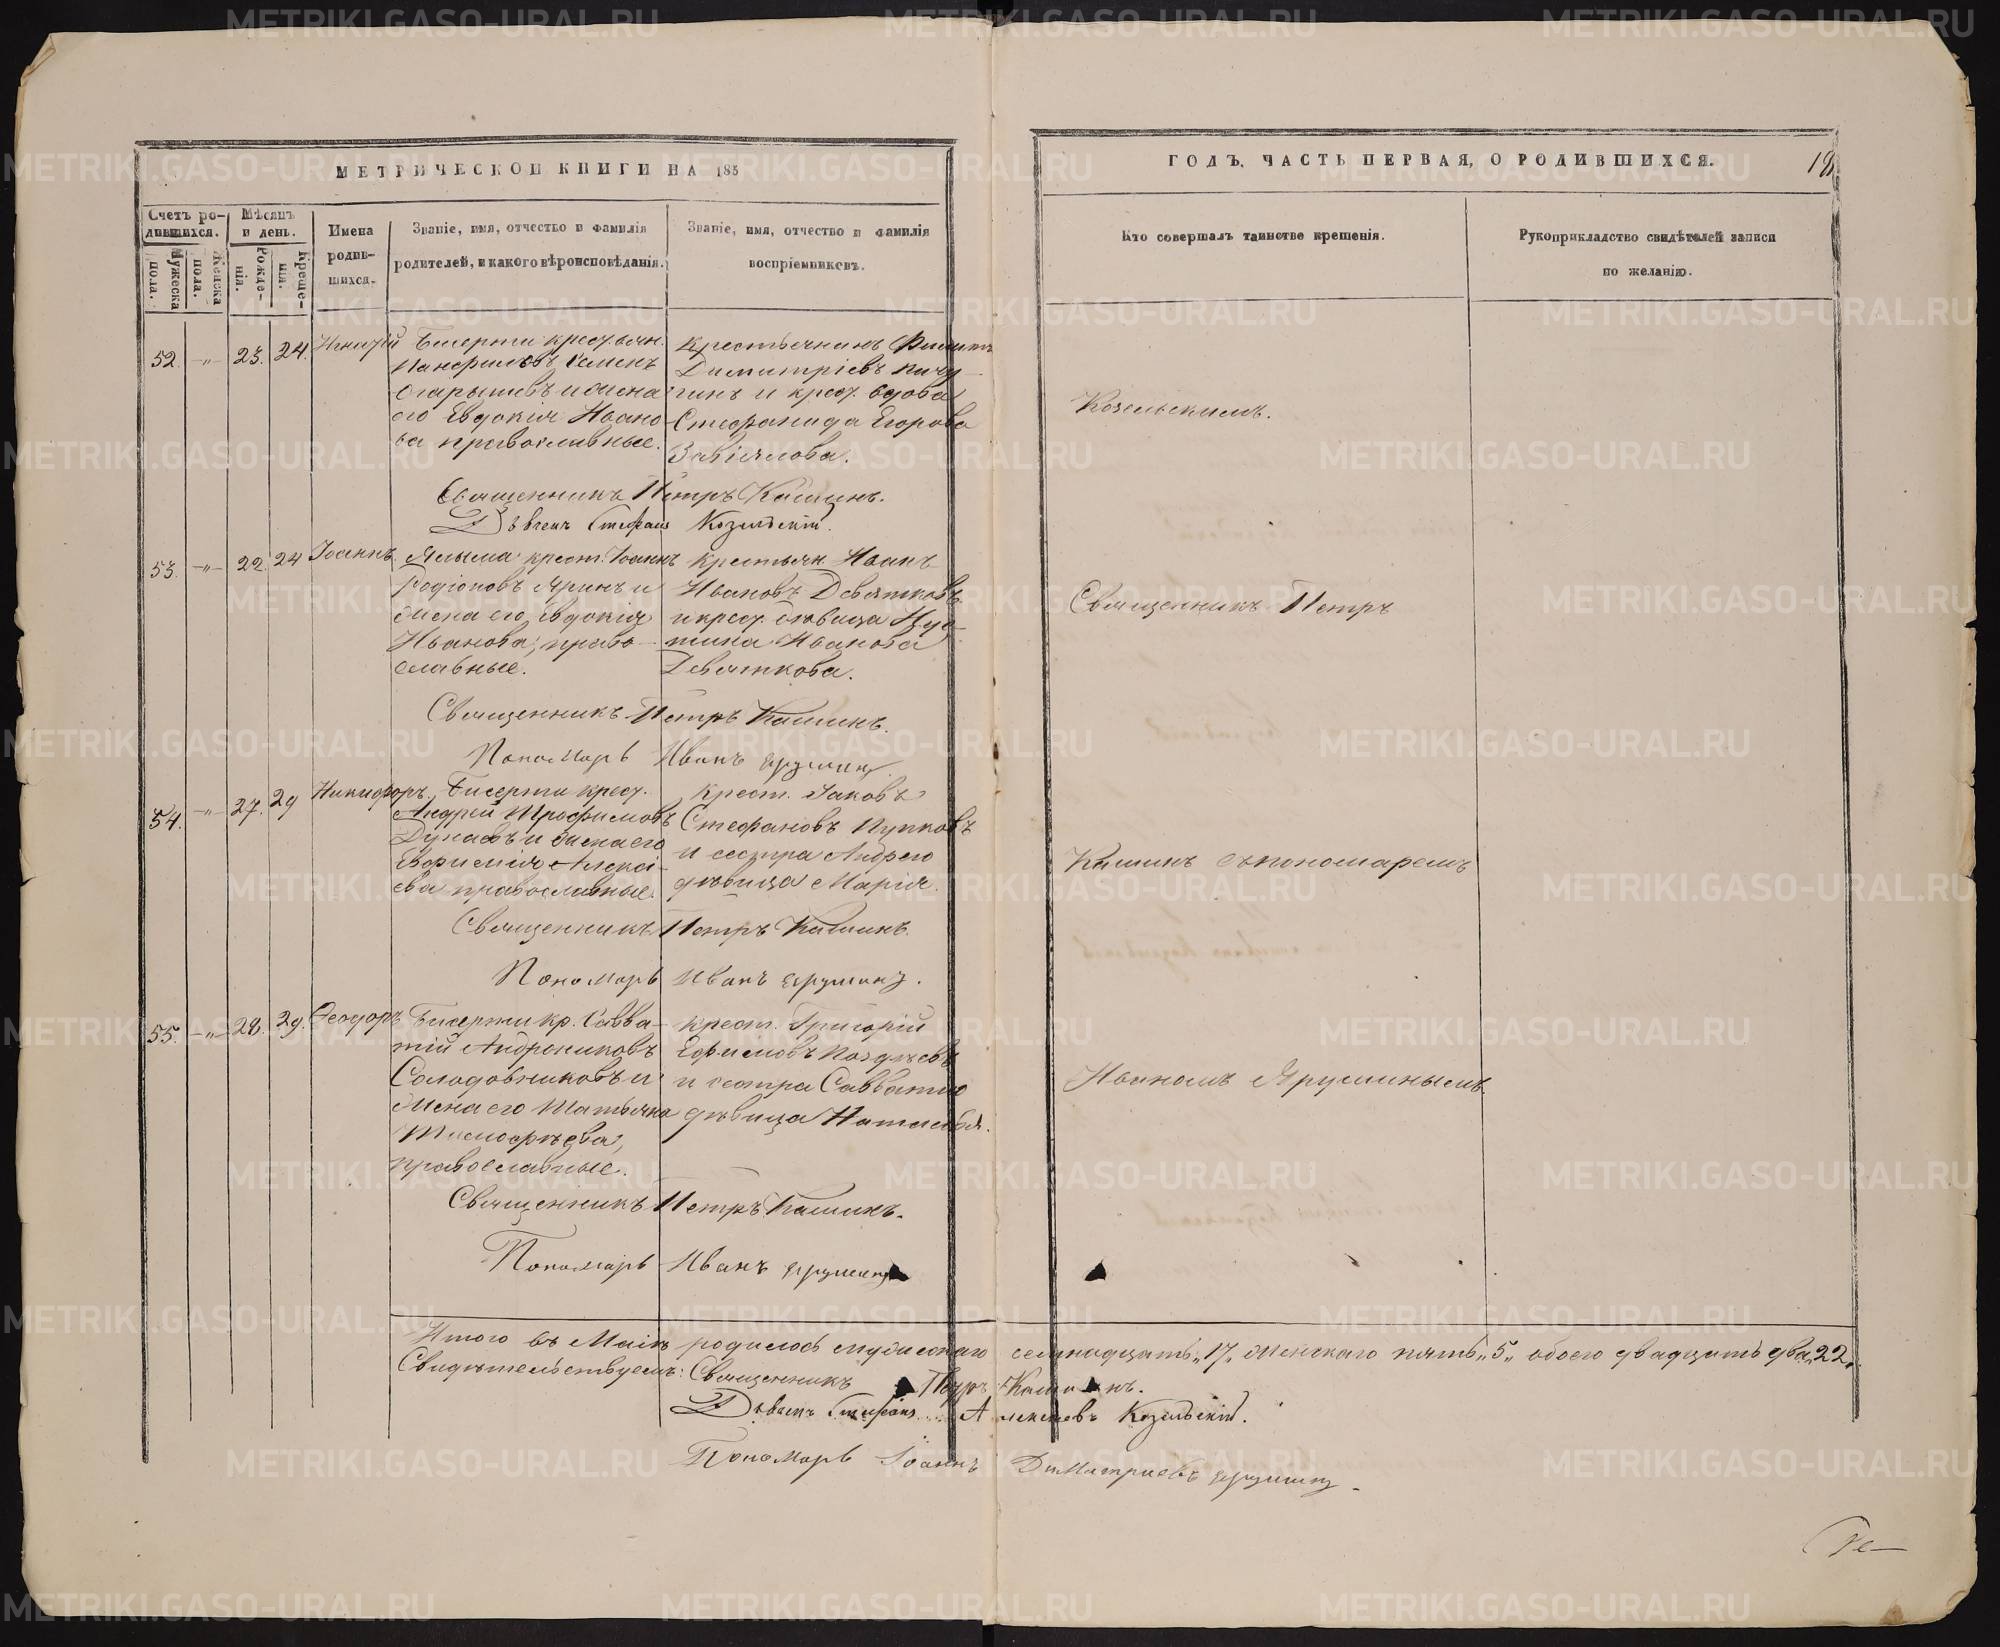 МЕТРИЧЕСКОЙ КНИГИ НА 185
ГОДЪ, ЧАСТЬ ПЕРВАЯ, О РОДИВШИХСЯ.
Счетъ родившихся.
Мужеска пола.
Женска пола.
Мѣсяцъ и день.
Рожденія.
Крещенія.
Имена родившихся.
Званіе, имя, отчество и фамилія
родителей, и какого вѣроисповѣданія.
Званіе, имя, отчество и фамилія
воспріемниковъ.
Кто совершалъ таинство крещенія.
Рукоприкладство свидѣтелей записи
по желанію.
52 -"- 23. 24. Игнатій
Бисерти крестьян.
Панфиловъ Семенъ
и жена
его Евдокія Ивано
ва православные.
Крестьянинъ
Димитріевъ Пичу
гинъ и крест. вдова
Стефанида Егорова
Завіялова.
Козельскимъ.
Священникъ Петръ Кашинъ.
Дьячекъ Стефанъ Козельскій.
53. -"- 22. 24 Іоаннъ.
крест. Іоаннъ
Родіоновъ Яринъ и
жена его Евдокія
Иванова, право
славные.
крестьян. Иванъ
Ивановъ Девятковъ
и крест. дѣвица
Иванова
Девяткова.
Священникъ Петръ
Священникъ Петръ Кашинъ.
Пономарь Иванъ Ярушинъ.
54. -"- 27. 29 Никифоръ.
Бисерти крест.
Андрей Трофимовъ
Дунаевъ и жена его
Евфимія Алексі
ева православные.
крест. Іаковъ
Стефановъ Пупковъ
и сестра Андрею
дѣвица Марія.
Кашинъ съ пономаремъ
Священникъ Петръ Кашинъ.
Пономарь Иванъ Ярушинъ.
55. -"- 28. 29. Феодоръ
Бисерти кр. Савва-
тій Андрониковъ
Солодовниковъ и
жена его Татьяна
Тимофѣева,
православные.
крест. Григорій
Ефимовъ Поздѣевъ
и сестра Савватію
дѣвица Наталья.
Иваномъ Ярушинымъ.
Священникъ Петръ Кашинъ.
Пономарь Иванъ Ярушинъ
Итого въ Маіѣ родилось мужескаго семнадцать "17" женскаго пять "5" обоего двадцать два "22"
Свидѣтельствуемъ: Священникъ Петръ Кашинъ.
Дьячекъ Стефанъ Алексѣевъ Козельскій.
Пономарь Іоаннъ Димитриевъ Ярушинъ
METRIKI.GASO-URAL.RU